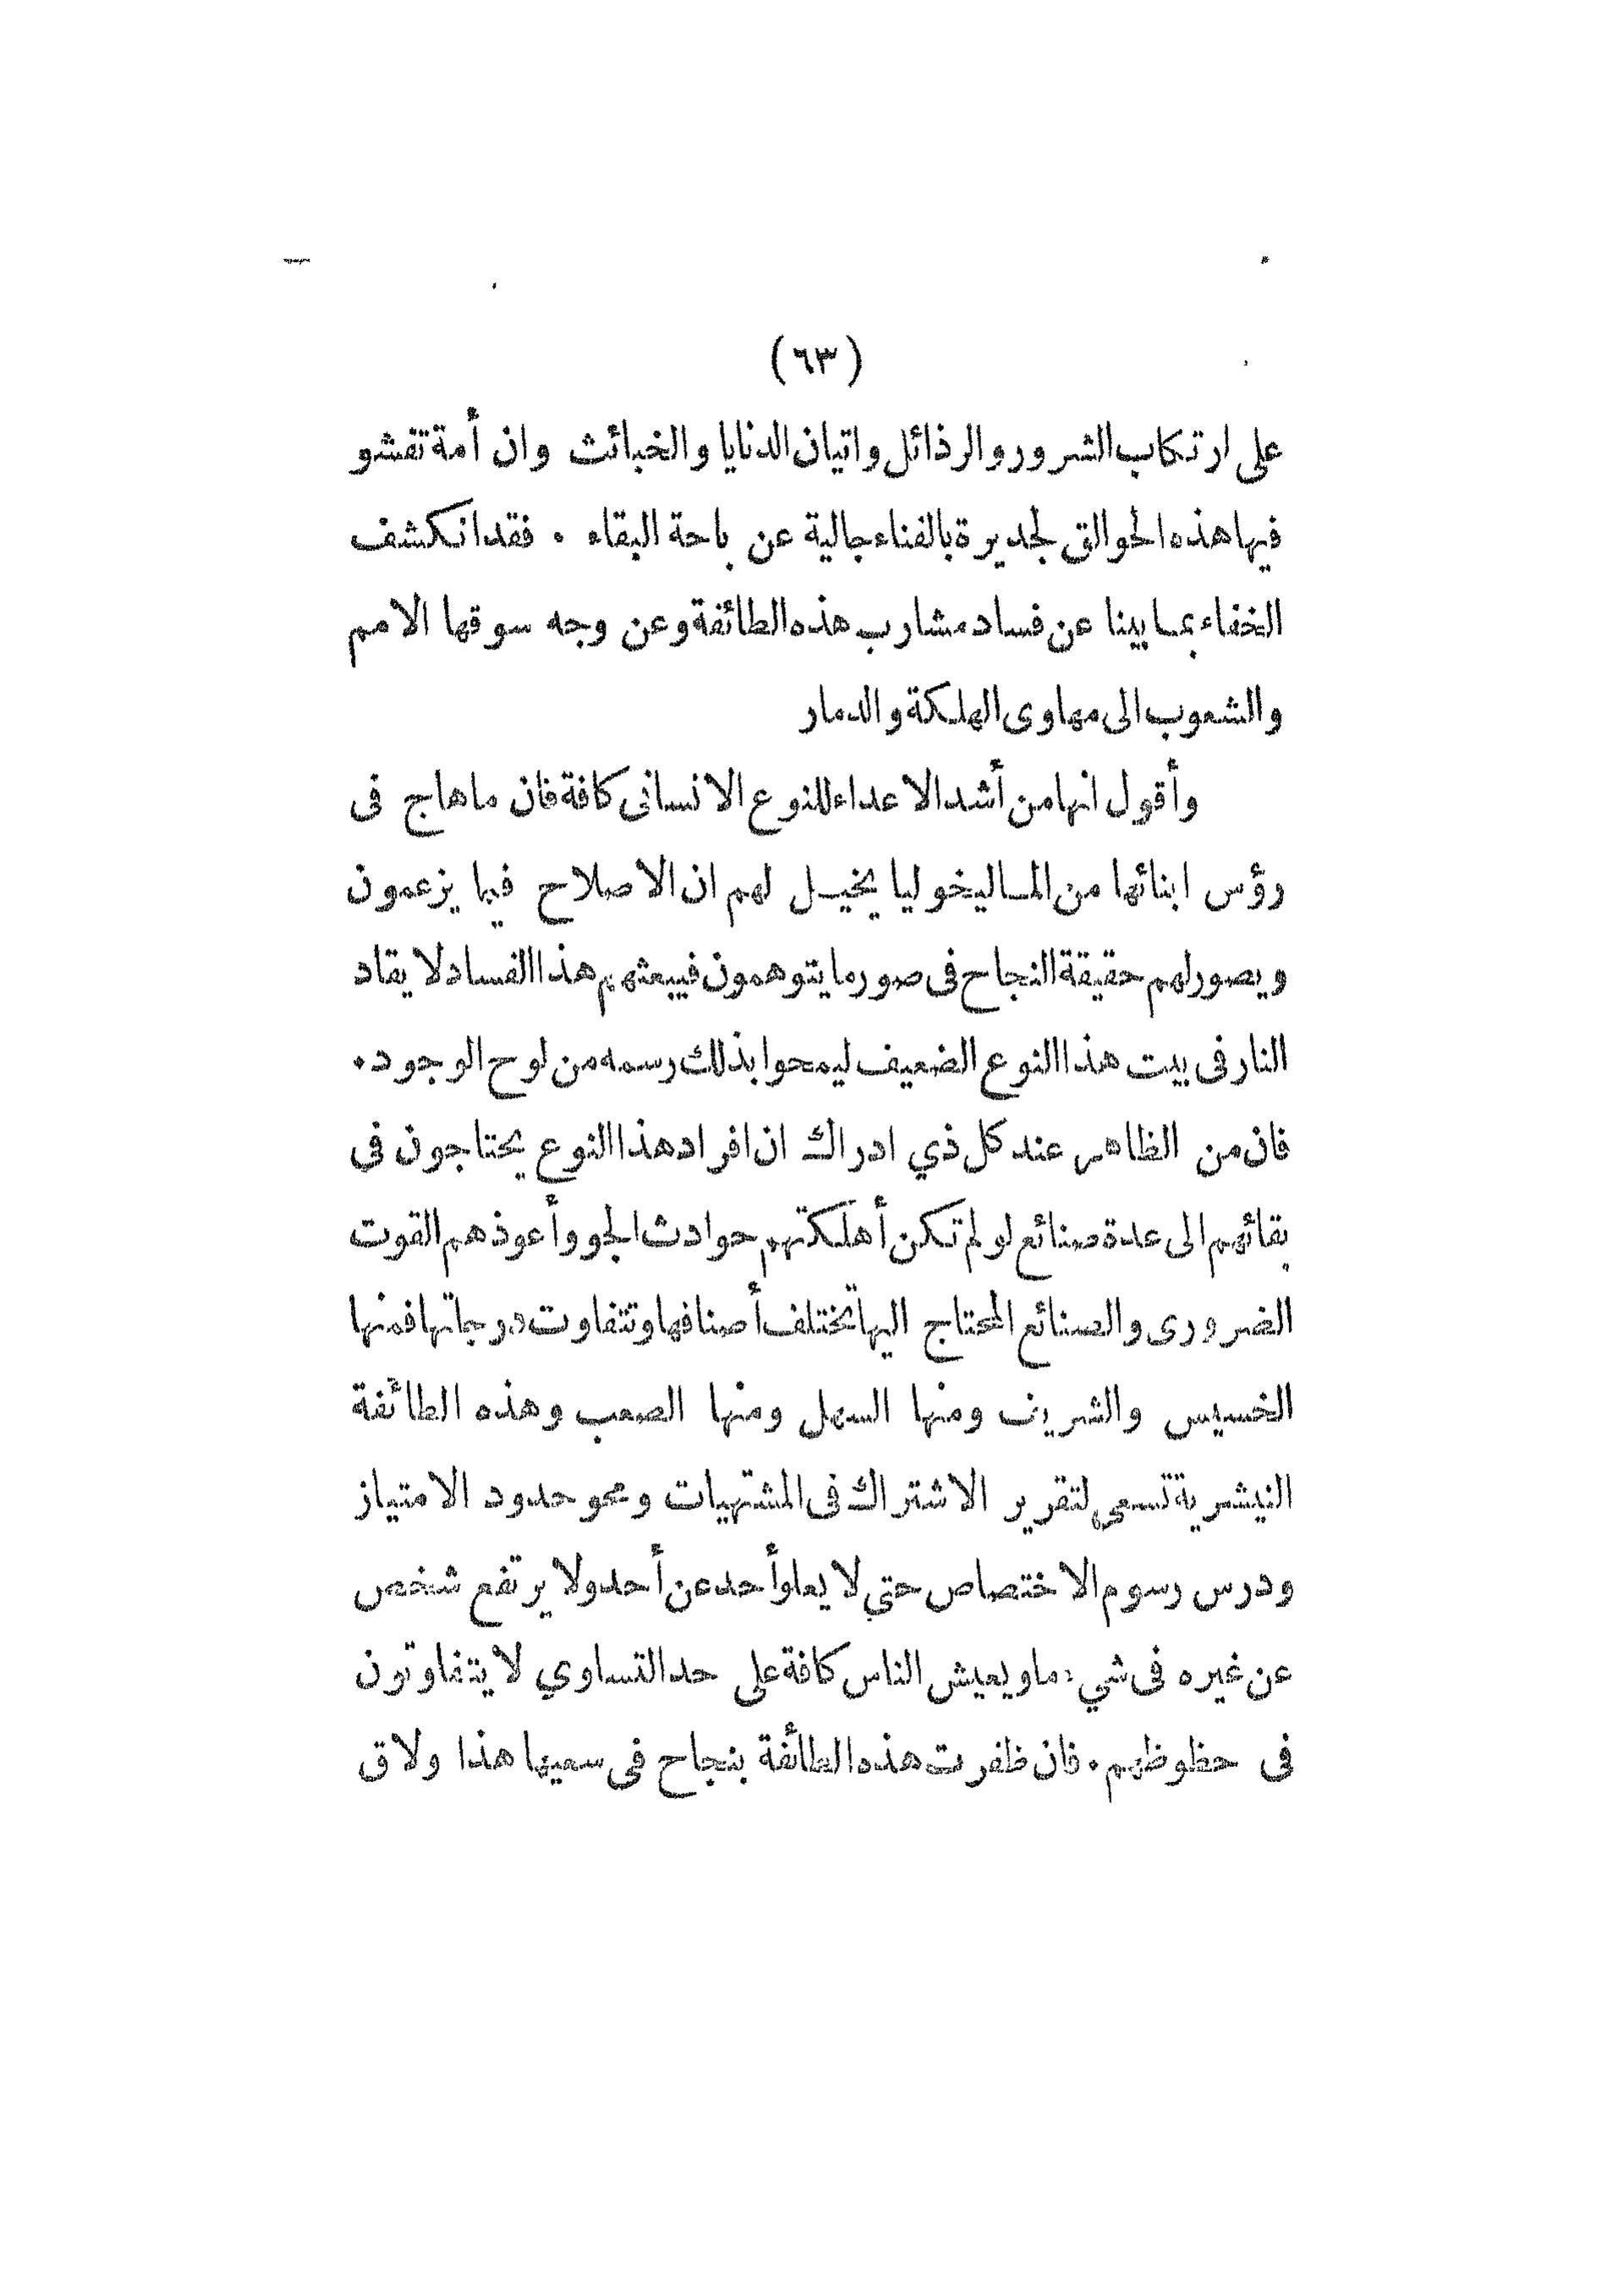 (٦٣)
على ارتكاب الشرور والرذائل واتيان الدنايا والخبائث وان أمة تفشو
فيها هذه الحوالق لجديرة بالفناء جالية عن باحة البقاء . فقد انكشف
الخفاء بما بينا عن فساد مشارب هذه الطائفة وعن وجه سوقها الامم
والشعوب الى مهاوى الهلكة والدمار
وأقول انها من أشد الاعداء للنوع الانسانى كافة فان ما هاج فى
رؤس ابنائها من الماليخوليا يخيل لهم ان الاصلاح فيما يزعمون
ويصور لهم حقيقة النجاح فى صور ما يتوهمون فيبعثهم هذا الفساد لايقاد
النار فى بيت هذا النوع الضعيف ليمحوا بذلك رسمه من لوح الوجود .
فان من الظاهر عند كل ذي ادراك ان افراد هذا النوع يحتاجون فى
بقائهم الى عدة صنائع لو لم تكن أهلكتهم حوادث الجو وأعوذهم القوت
الضرورى والصنائع المحتاج اليها تختلف أصنافها وتتفاوت درجاتها فمنها
الخسيس والشريف ومنها السهل ومنها الصعب وهذه الطائفة
النيشرية تسعى لتقرير الاشتراك فى المشتهيات ومحو حدود الامتياز
ودرس رسوم الاختصاص حتي لا يعلو أحد عن أحد ولا يرتفع شخص
عن غيره فى شيء ما ويعيش الناس كافة على حد التساوي لا يتفاوتون
فى حظوظهم . فان ظفرت هذه الطائفة بنجاح فى سعيها هذا ولاق